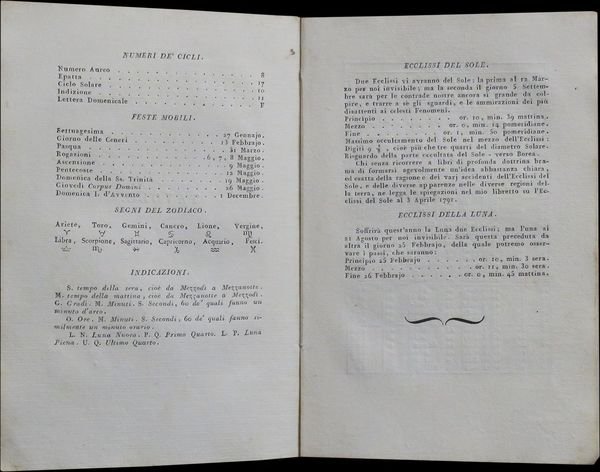 NUMERI DE' CICLI.
Numero Aureo . . . . . . . . . . . . 8
Epatta . . . . . . . . . . . . . . . 17
Ciclo Solare . . . . . . . . . . . . 10
Indizione . . . . . . . . . . . . . 11
Lettera Domenicale . . . . . . . . . F
FESTE MOBILI.
Settuagesima . . . . . . . . . 27 Gennajo.
Giorno delle Ceneri . . . . . . 13 Febbrajo.
Pasqua . . . . . . . . . . . . 31 Marzo.
Rogazioni . . . . . . . . 6, 7, 8 Maggio.
Ascensione . . . . . . . . . . 9 Maggio.
Pentecoste . . . . . . . . . . 12 Maggio.
Domenica della Ss. Trinità . . . 19 Maggio.
Giovedì Corpus Domini . . . . . 26 Maggio.
Domenica I. d'Avvento . . . . . 1 Decembre.
SEGNI DEL ZODIACO.
Ariete, Toro, Gemini, Cancro, Lione, Vergine,
♈ ♉ ♊ ♋ ♌ ♍
Libra, Scorpione, Sagittario, Capricorno, Acquario, Pesci.
♎ ♏ ♐ ♑ ♒ ♓
INDICAZIONI.
S. tempo della sera, cioè da Mezzodì a Mezzanotte.
M. tempo della mattina, cioè da Mezzanotte a Mezzodì.
G. Gradi. M. Minuti. S. Secondi, 60 de' quali fanno un
minuto d'arco.
O. Ore. M. Minuti. S. Secondi, 60 de' quali fanno si-
milmente un minuto orario.
L. N. Luna Nuova. P. Q. Primo Quarto. L. P. Luna
Piena. U. Q. Ultimo Quarto.
ECCLISSI DEL SOLE.
Due Ecclissi vi avranno del Sole: la prima al 12 Mar-
zo per noi invisibile; ma la seconda il giorno 5 Settem-
bre sarà per le contrade nostre ancora sì grande da col-
pire, e trarre a sè gli sguardi, e le ammirazioni dei più
disattenti ai celesti Fenomeni.
Principio . . . . . . . or. 10, min. 39 mattina.
Mezzo . . . . . . or. 0, min. 14 pomeridiane.
Fine . . . . . . or. 1, min. 50 pomeridiane.
Massimo occultamento del Sole nel mezzo dell'Ecclissi:
Digiti 9 , cioè più che tre quarti del diametro Solare.
Riguardo della parte occultata del Sole - verso Borea.
Chi senza ricorrere a libri di profonda dottrina bra-
ma di formarsi agevolmente un'idea abbastanza chiara,
ed esatta della ragione e dei varj accidenti dell'Ecclissi del
Sole, e delle diverse apparenze nelle diverse regioni del-
la terra, ne legga le spiegazioni nel mio libretto su l'Ec-
clissi del Sole al 3 Aprile 1791.
ECCLISSI DELLA LUNA.
Soffrirà quest'anno la Luna due Ecclissi; ma l'una ai
21 Agosto per noi invisibile. Sarà questa preceduta da
altra il giorno 25 Febbrajo, della quale potremo osser-
vare i passi, che saranno:
Principio 25 Febbrajo . . . . . or. 10, min. 3 sera.
Mezzo . . . . . . . . . . or. 11, min. 30 sera.
Fine 26 Febbrajo . . . . . . or. 0, min. 45 mattina.